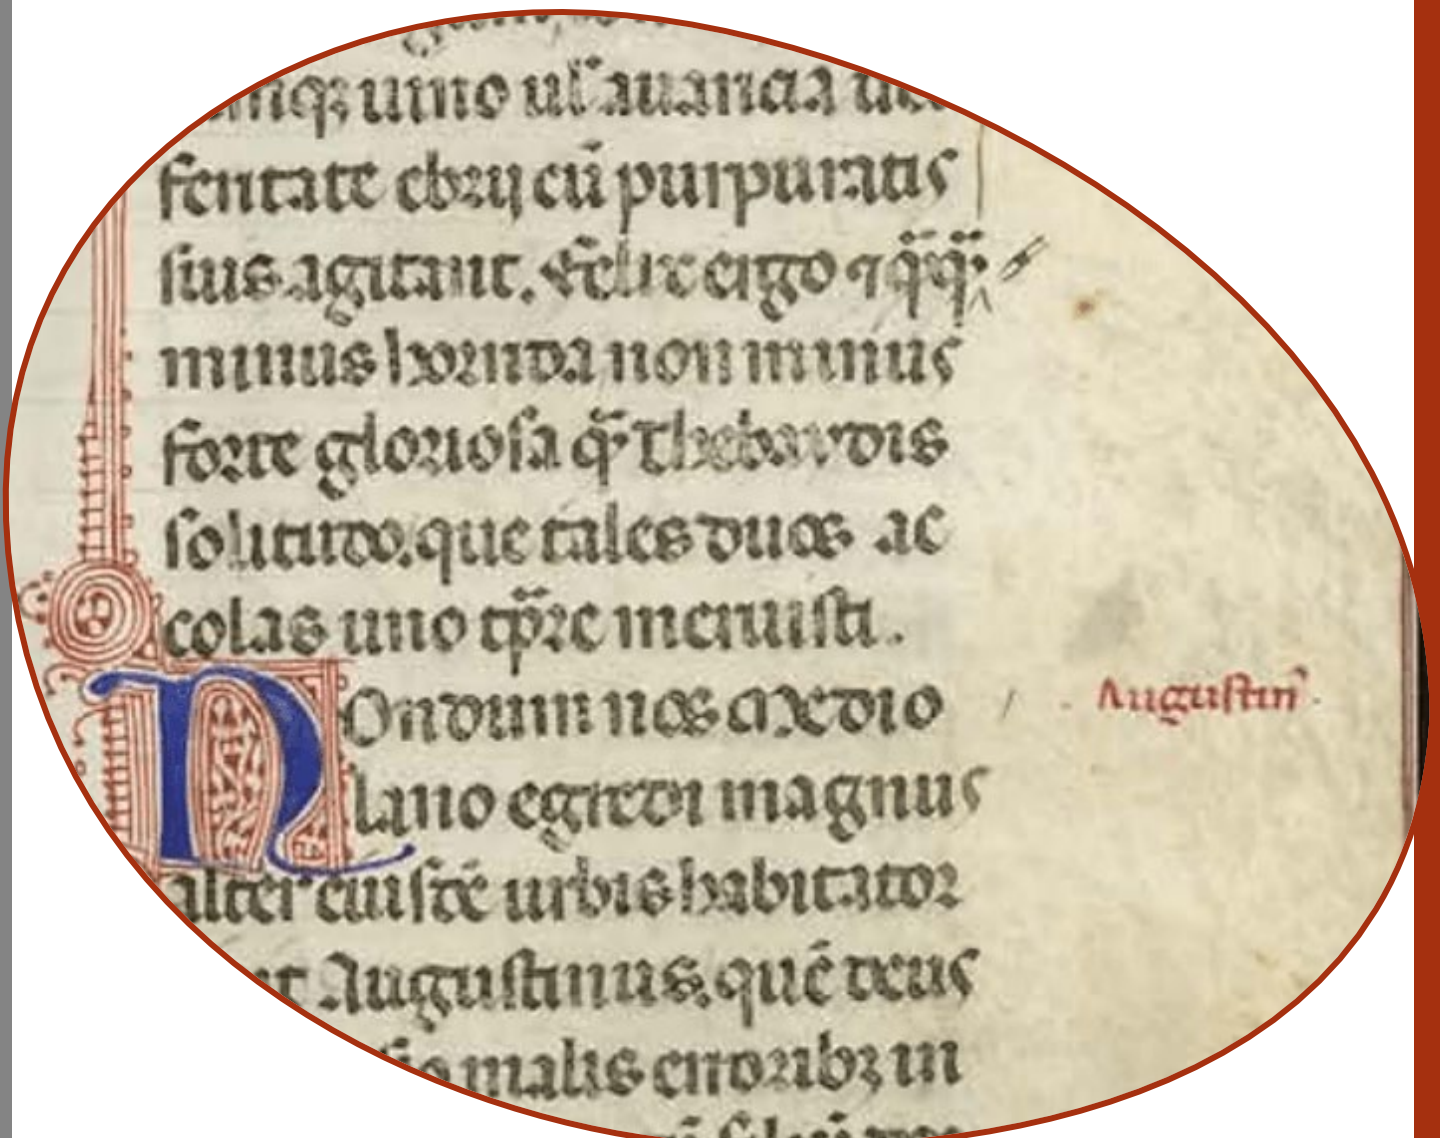 uino ul' auaricia
sentate ebrij cū purpuratis
suis agitant. Felix ergo ⁊ q̄q̄
minus horrida non minus
forte gloriosa q̄ thebaydis
solitudo. que tales duos ac
colas uno tp̄re meruisti.
Nondum nos a Mediolano
egredi magnus Augustin⁹
alter eiusdē urbis habitator
Augustinus. quē deus
malis erroribꝫ in